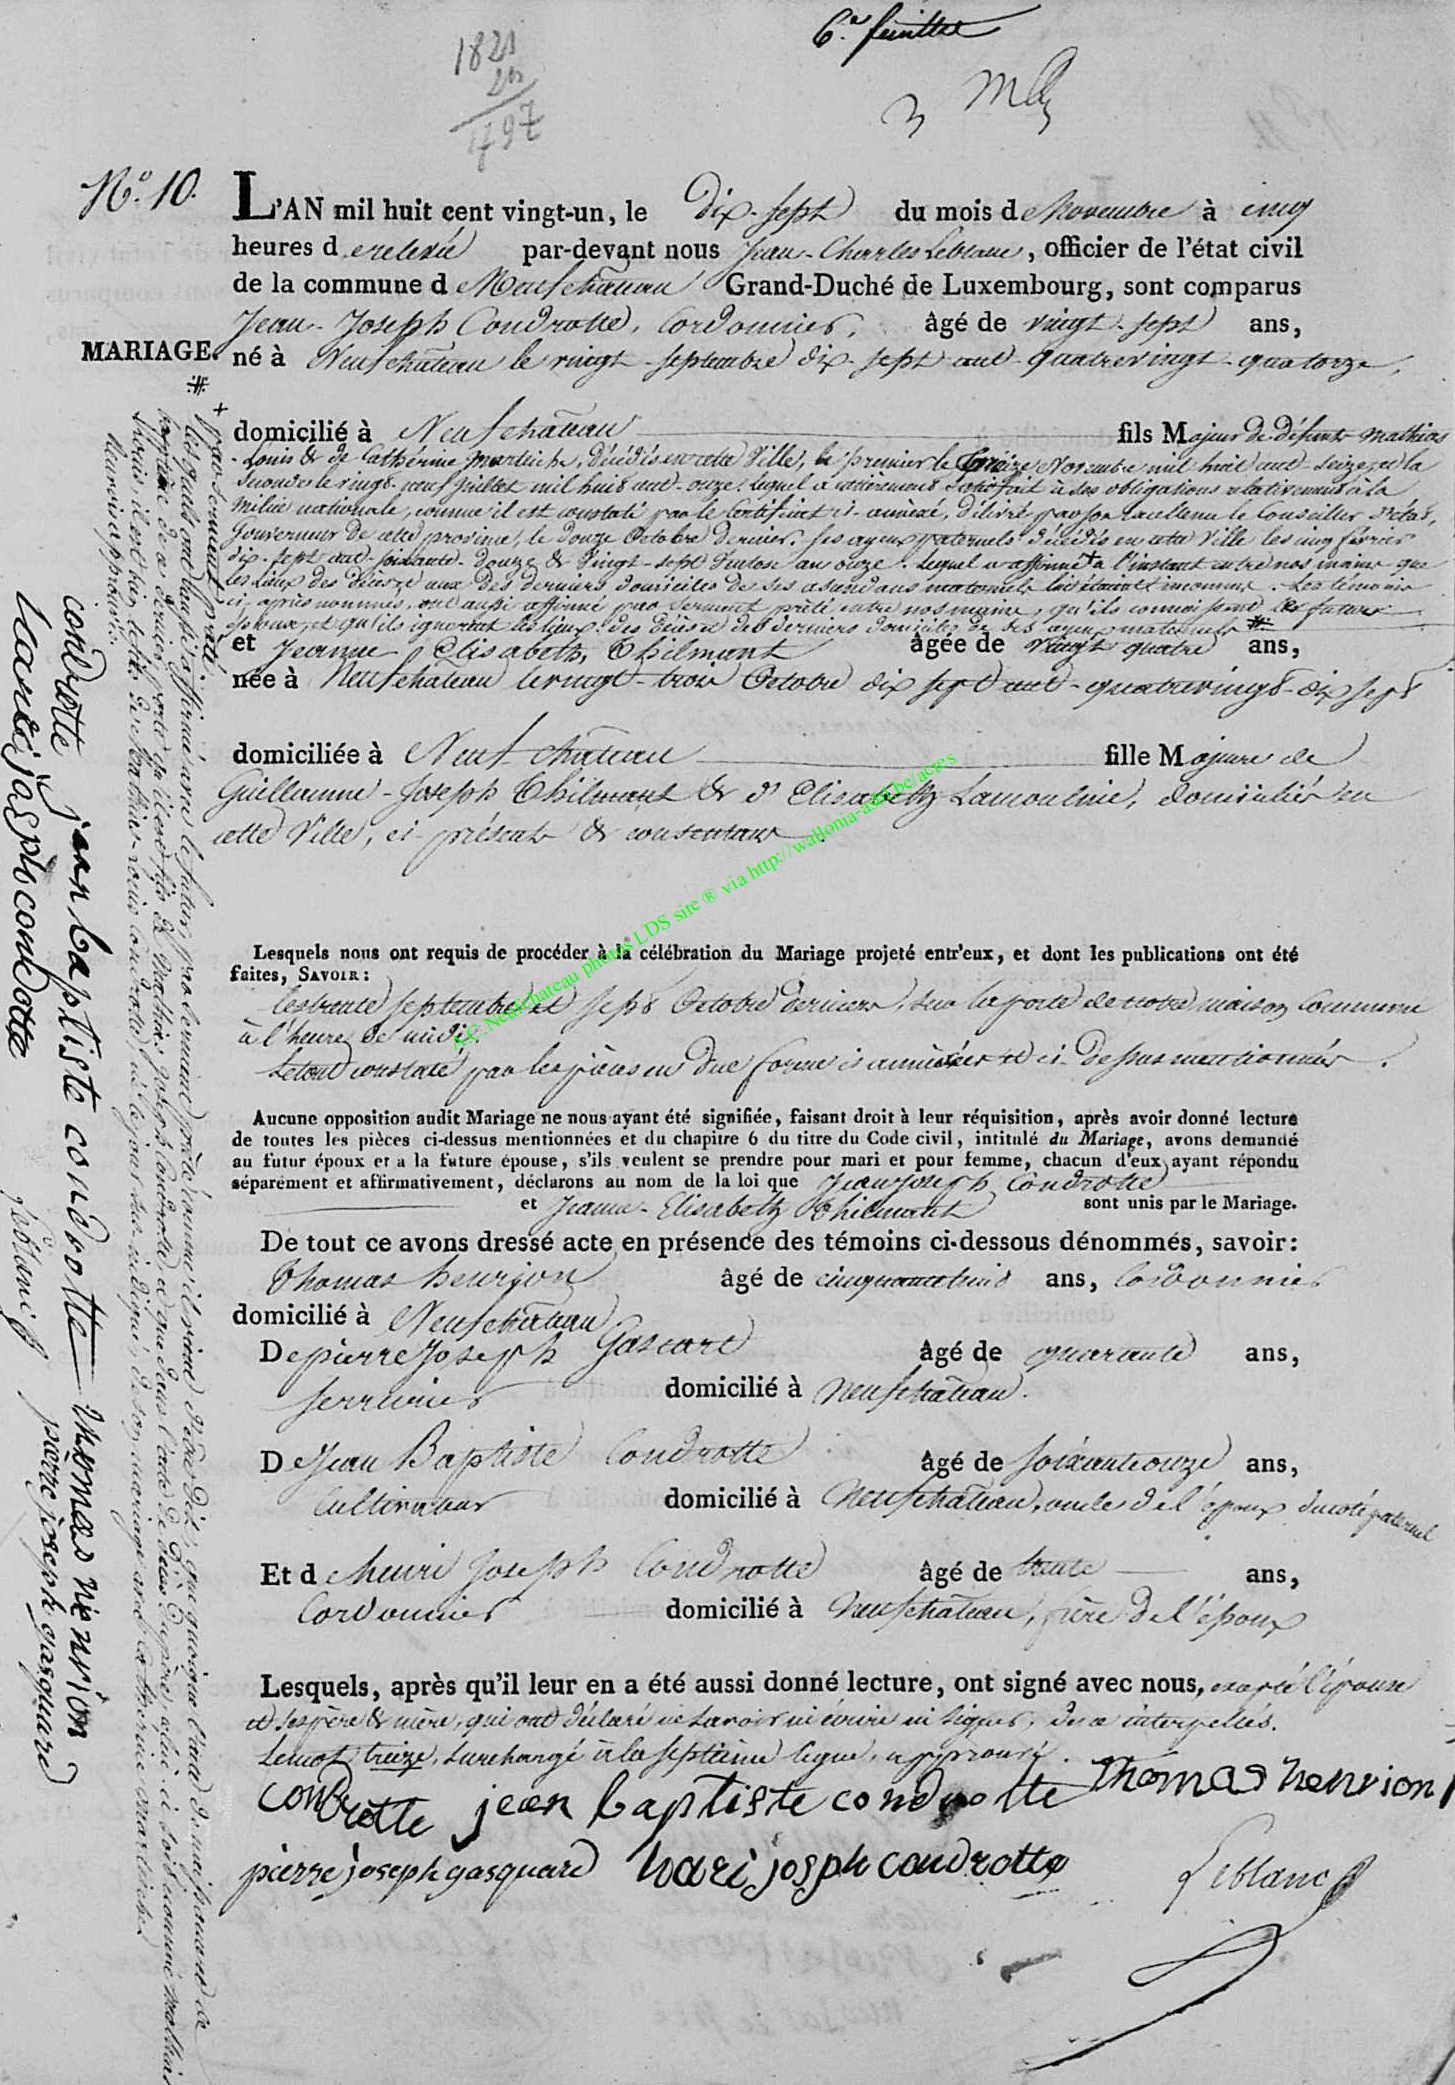 6.e feuillet
1821
24
1797
N.o 10.
L'AN mil huit cent vingt-un, le dix-sept du mois de Novembre à cinq
heures de relevée par-devant nous Jean-Charles Leblanc, officier de l'état civil
de la commune de Neufchâteau Grand-Duché de Luxembourg, sont comparus
Jean-Joseph Condrotte, Cordonnier, âgé de vingt-sept ans,
MARIAGE. né à Neufchâteau le vingt-septembre dix-sept cent-quatrevingt-quatorze,
domicilié à Neufchâteau fils Majeur de défunts Mathias
-Louis & de Cathérine Marliche, décédés en cette Ville, le premier le treize Novembre mil huit cent-seize, et la
seconde le vingt-neuf Juillet mil huit cent-onze. lequel a entièrement satisfait à ses obligations relativement à la
milice nationale, comme il est constaté par le Certificat ci-annexé, délivré par Son Excellence le Conseiller d'état,
Gouverneur de cette province, le douze Octobre dernier. ses ayeux paternels décédés en cette Ville les cinq février
dix-sept cent-soixante-douze & vingt-sept an onze. Lequel a affirmé + à l'instant entre nos mains que
les lieux des décès et ceux des derniers domiciles de ses ascendans maternels lui étaient inconnus. Les témoins
ci-après nommés, ont aussi affirmé par serment prêté entre nos mains, qu'ils connoissent les futurs
époux, et qu'ils ignorent les lieux des décès et des derniers domiciles de ses ayeux maternels #
et Jeanne Elisabeth Thilmant âgée de vingt quatre ans,
née à Neufchâteau le vingt-trois Octobre dix sept cent-quatrevingt-dix sept
domiciliée à Neufchâteau fille Majeure de
Guillaume-Joseph Thilmant & d'Elisabeth Lamouline, domiciliés en
cette Ville, ci-présents & consentans
A.C. Neufchateau photos LDS site ® via http://wallonia-asbl.be/actes
Lesquels nous ont requis de procéder à la célébration du Mariage projeté entr'eux, et dont les publications ont été
faites, SAVOIR:
les trente septembre et sept Octobre derniers, sur la porte de notre maison Commune
à l'heure de midi.
Le tout constaté par les pièces en due forme ci annexées et ci-dessus mentionnées.
Aucune opposition audit Mariage ne nous ayant été signifiée, faisant droit à leur réquisition, après avoir donné lecture
de toutes les pièces ci-dessus mentionnées et du chapitre 6 du titre du Code civil, intitulé du Mariage, avons demandé
au futur époux et a la future épouse, s'ils veulent se prendre pour mari et pour femme, chacun d'eux ayant répondu
séparément et affirmativement, déclarons au nom de la loi que Jean Joseph Condrotte
et Jeanne-Elisabeth Thilmant sont unis par le Mariage.
De tout ce avons dressé acte en présence des témoins ci-dessous dénommés, savoir:
Thomas henrion âgé de cinquante huit ans, Cordonnier
domicilié à Neufchâteau
De pierre Joseph Gascard âgé de quarante ans,
serrurier domicilié à Neufchâteau.
De Jean Baptiste Condrotte âgé de soixante onze ans,
Cultivateur domicilié à Neufchâteau, oncle de l'époux du coté paternel
Et de henri Joseph Condrotte âgé de trente ans,
Cordonnier domicilié à Neufchâteau, frère de l'époux
Lesquels, après qu'il leur en a été aussi donné lecture, ont signé avec nous, excepté l'épouse
et ses père & mère, qui ont déclaré ne savoir ni écrire ni signer, de ce interpellés.
Le mot treize, surchargé à la septième ligne, approuvé.
condrotte jean baptiste condrotte thomas henrion
pierre joseph gasquard hari josph condrotte Leblanc
+ par serment prêté.
# lesquels ont aussi affirmé avec le futur, par serment prêté comme il vient d'être dit, que quoique l'acte de naissance de
ce dernier porte qu'il est fils de Mathias Joseph Condrotte, et que dans l'acte de décès du père, celui-ci soit nommé Mathias
Louis, il est bien le fils de Mathias-Louis Condrotte
Renvoi approuvé.
condrotte jean baptiste condrotte thomas henrion
hari josph condotte Leblanc pierre joseph gasquard